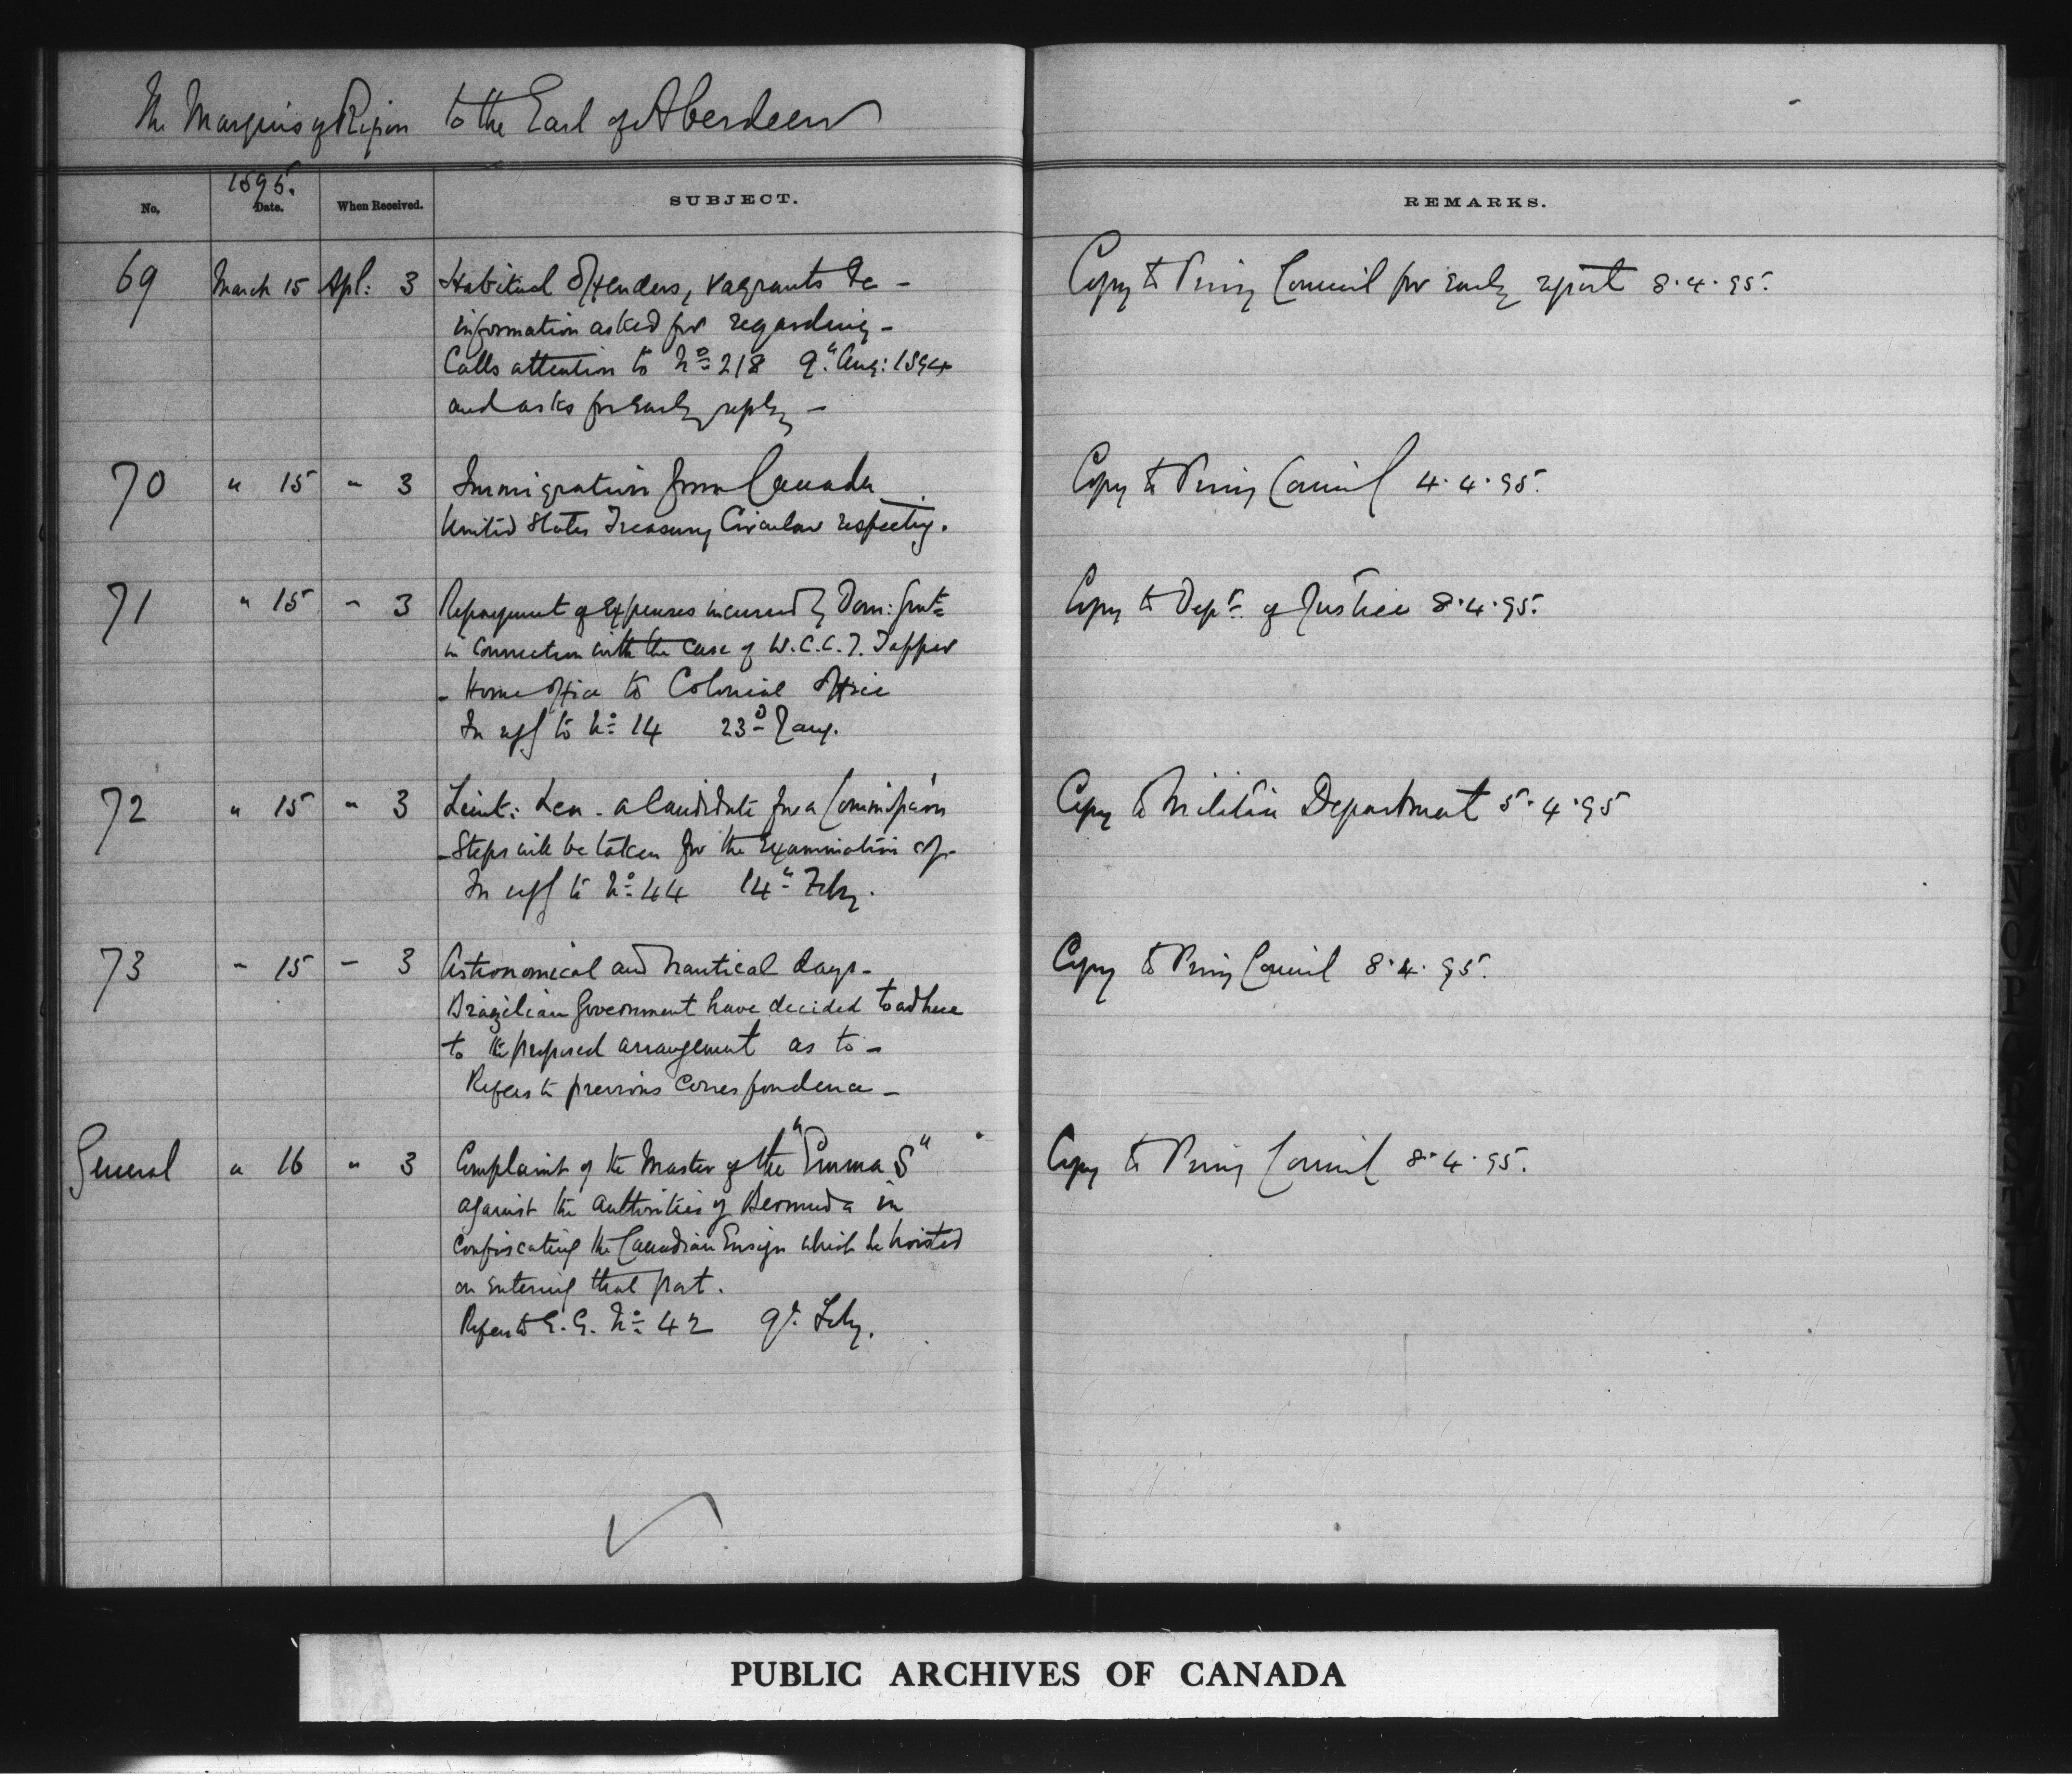 The Marquis of Ripon to the Earl of Aberdeen
1895.
No. Date. When Received. SUBJECT. REMARKS.
69 March 15 Apl: 3 Habitual Offenders, Vagrants &c - Copy to Privy Council for early report 8.4.95.
information asked for regarding -
Calls attention to No 218 9" Aug: 1894
and asks for early reply -
70 " 15 " 3 Immigration from Canada Copy to Privy Council 4.4.95.
United States Treasury Circular respecting.
71 " 15 " 3 Repayment of Expenses incurred by Dom: Govt Copy to Dept. of Justice 8.4.95.
in connection with the case of W.C.C.T. Tapper
- Home Office to Colonial Office
In reply to No 14 23d Jany.
72 " 15 " 3 Lieut: Lea - a Candidate for a Commission Copy to Militia Department 5.4.95
- Steps will be taken for the Examination of -
In reply to No 44 14" Feby.
73 " 15 " 3 Astronomical and Nautical days - Copy to Privy Council 8.4.95.
Brazilian Government have decided to adhere
to the proposed arrangement as to -
Refers to previous correspondence -
General " 16 " 3 Complaint of the Master of the "Emma S" Copy to Privy Council 8.4.95.
against the authorities of Bermuda in
confiscating the Canadian Ensign which he hoisted
on entering that port.
Refers to G.G. No 42 9th Feby.
PUBLIC ARCHIVES OF CANADA